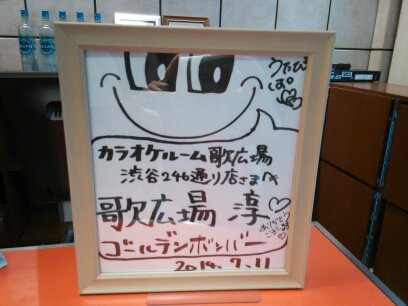 うたひろ
カラオケルーム歌広場
渋谷246通り店さま江
歌広場 淳
ありがとう
ございます
ゴールデンボンバー
2014.7.11